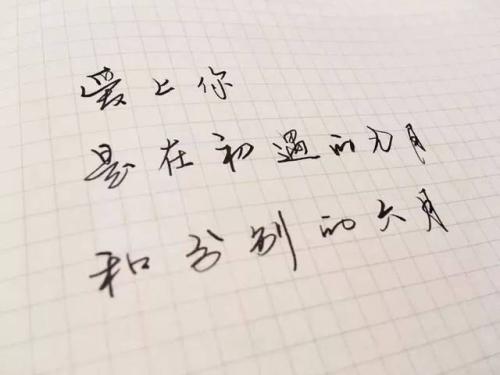 爱上你
是在初遇的九月
和分别的六月